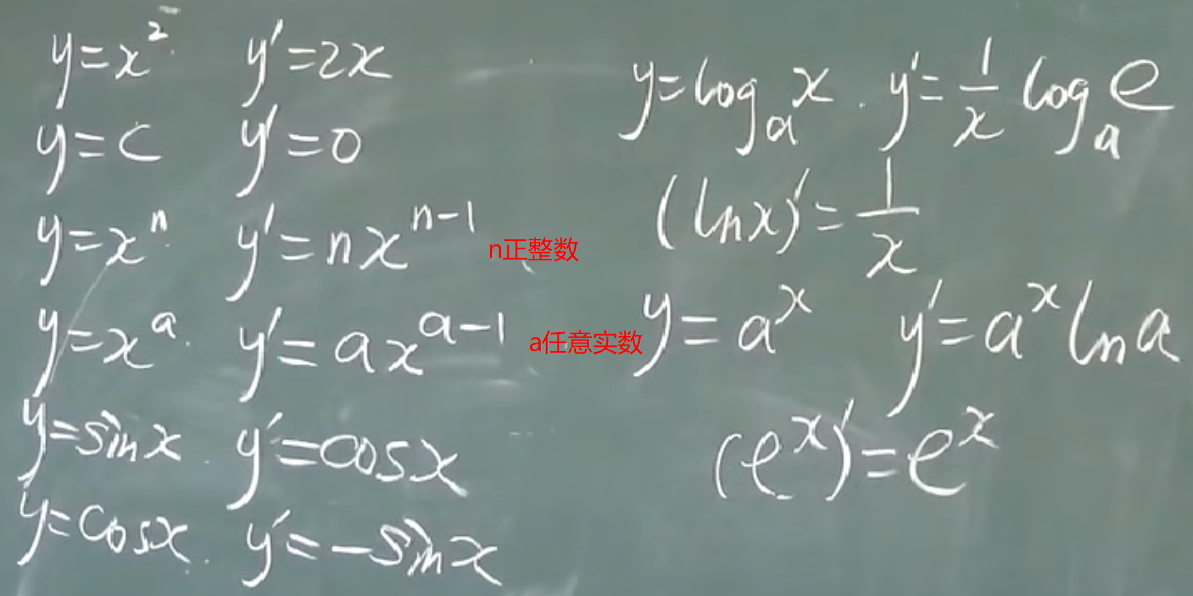 y=x² y'=2x
y=c y'=0
y=xⁿ y'=nxⁿ⁻¹ n正整数
y=x^a y'=ax^(a-1) a任意实数
y=sinx y'=cosx
y=cosx y'=-sinx
y=logₐx y'=1/x logₐe
(lnx)'=1/x
y=a^x y'=a^x lna
(e^x)'=e^x